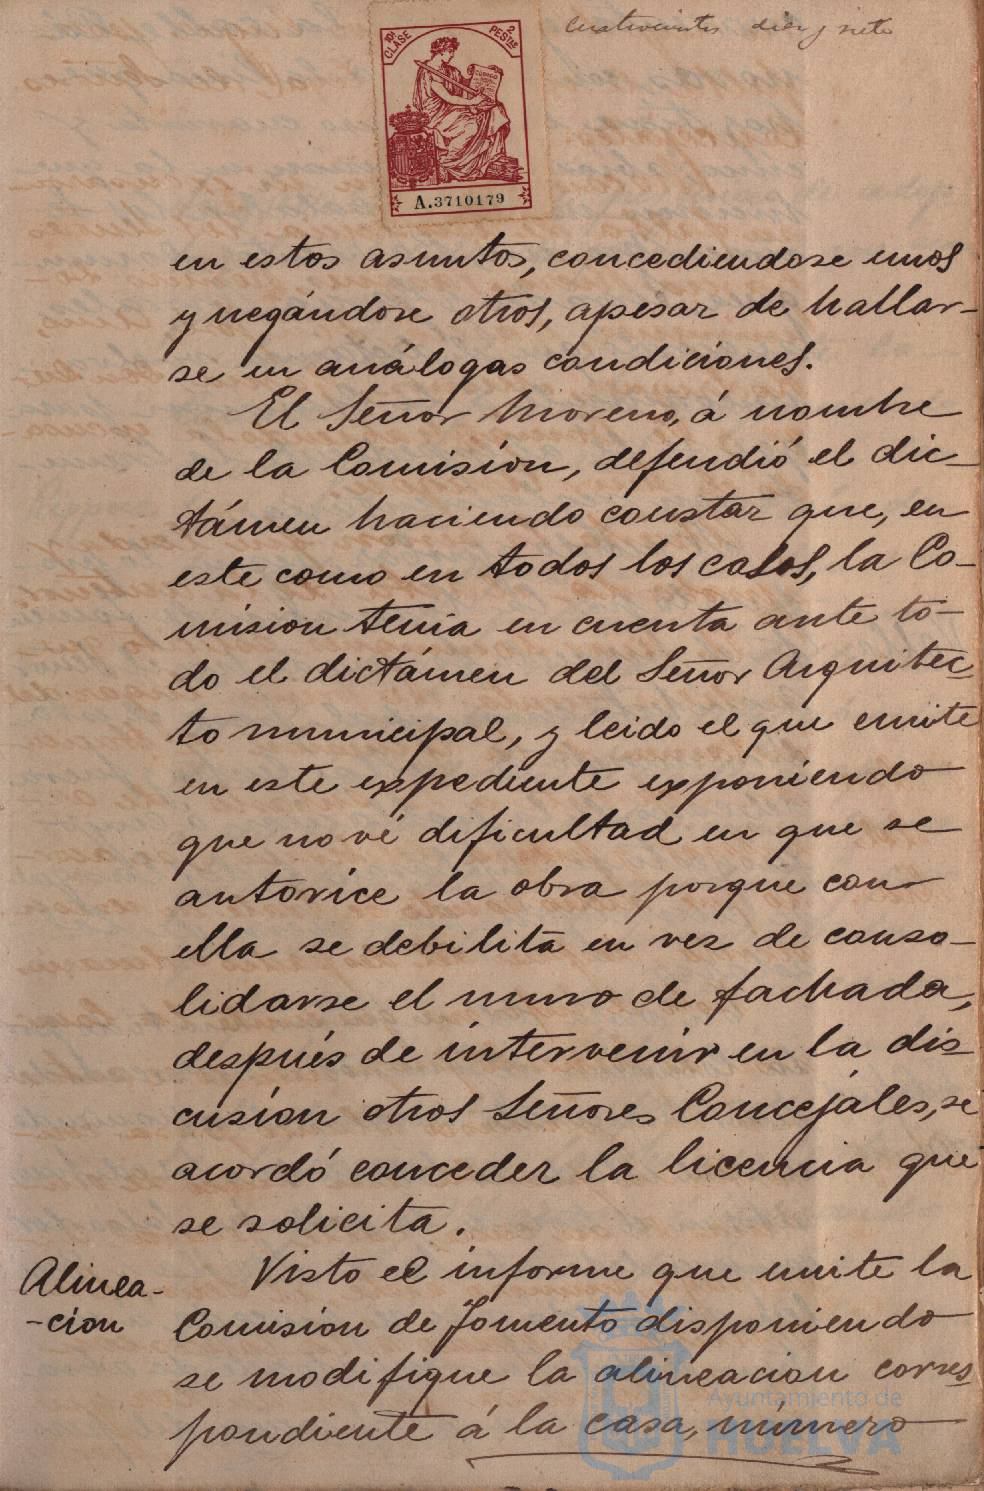 cuatrocientos diez y siete
10ª CLASE
2 PESTAS
CODIGO
A.3710179
en estos asuntos, concediendose unos
y negándose otros, apesar de hallar-
se en análogas condiciones.
El Señor Moreno, á nombre
de la Comisión, defendió el dic-
támen haciendo constar que, en
este como en todos los casos, la Co-
misión tenia en cuenta ante to-
do el dictámen del Señor Arquitec-
to municipal, y leido el que emite
en este expediente exponiendo
que no vé dificultad en que se
autorice la obra porque con
ella se debilita en vez de conso-
lidarse el muro de fachada,
después de intervenir en la dis-
cusión otros Señores Concejáles, se
acordó conceder la licencia que
se solicita.
Alinea-
-cion
Visto el informe que emite la
Comision de Fomento disponiendo
se modifique la alineacion corres-
pondiente á la casa, número
Ayuntamiento de
HUELVA